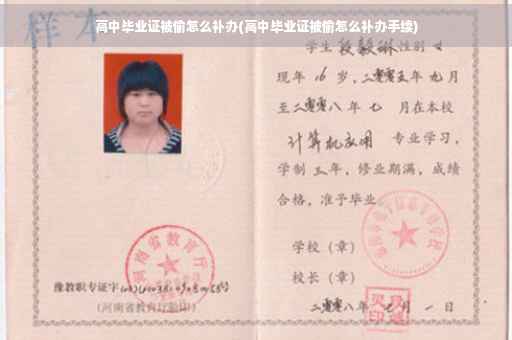 高中毕业证被偷怎么补办(高中毕业证被偷怎么补办手续)
样本
学生 段毅琳 性别 女
现年 16 岁，二零零五年 九月
至二零零八年 七 月在本校
计算机应用 专业学习，
学制 三年，修业期满，成绩
合格，准予毕业
学校（章）
校长（章）
二零零八年 七 月 一 日
河南省教育厅
豫教职专证字
(河南省教育厅验印)